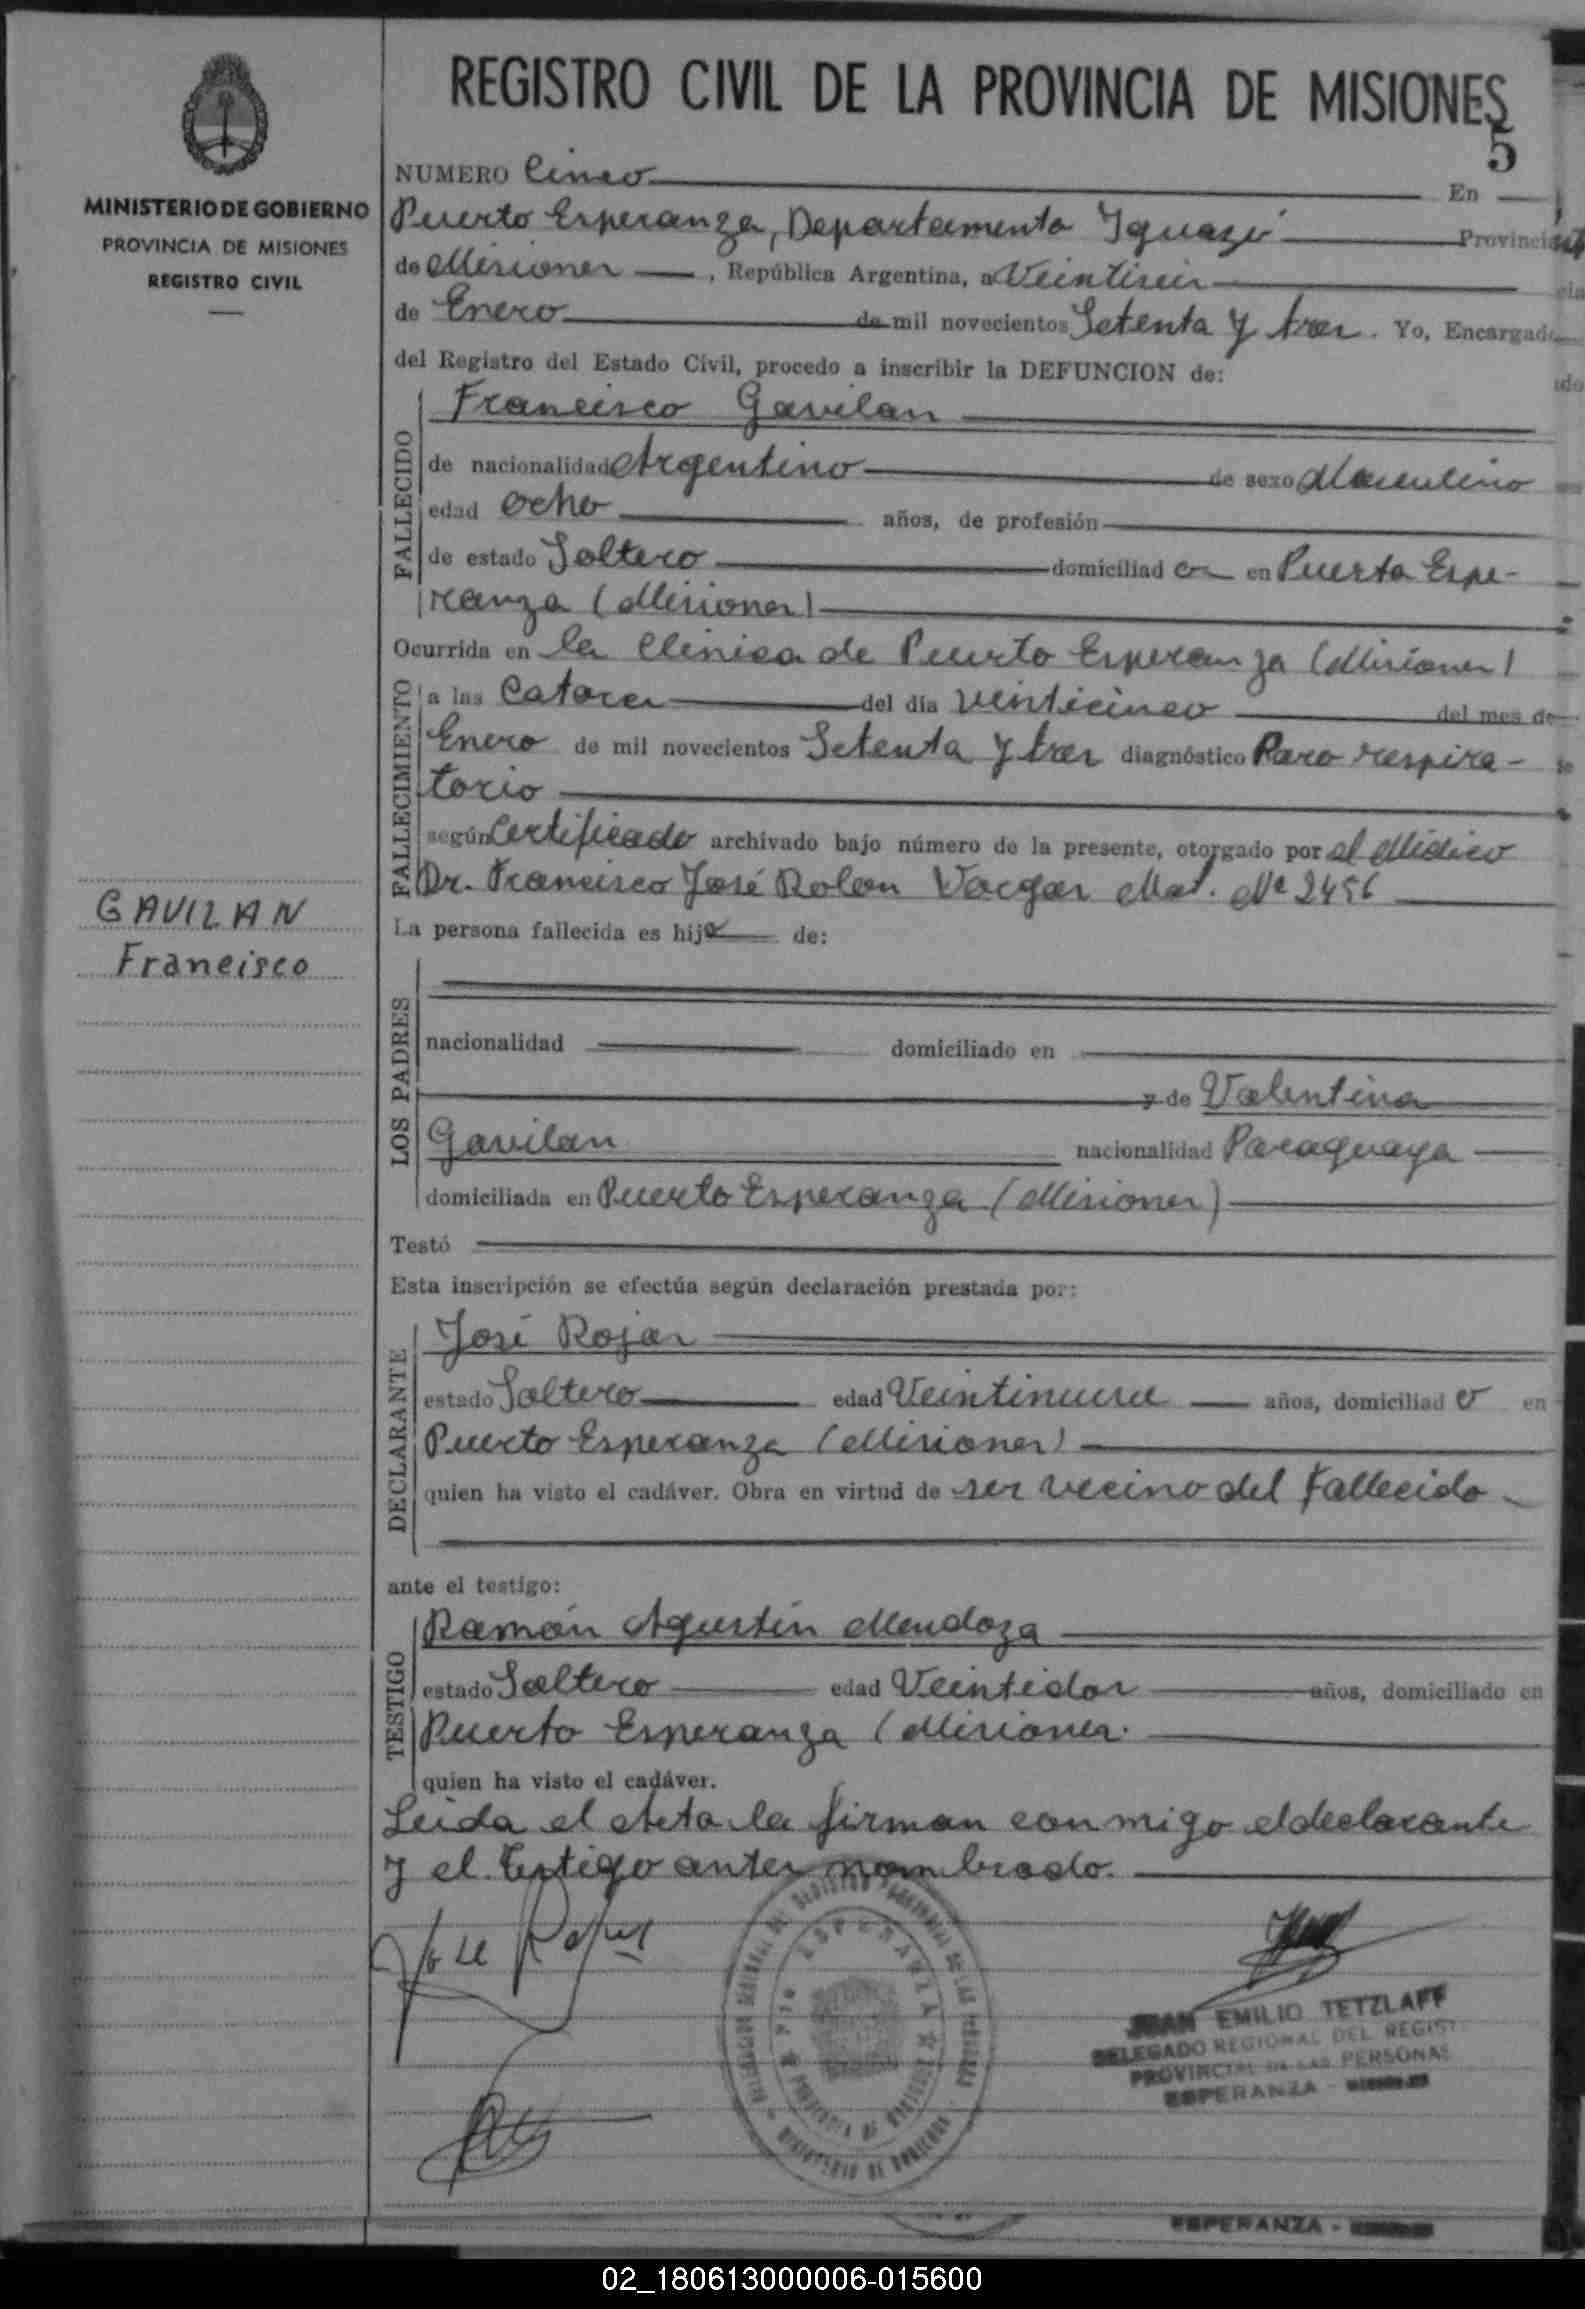 REGISTRO CIVIL DE LA PROVINCIA DE MISIONES
5
MINISTERIO DE GOBIERNO
PROVINCIA DE MISIONES
REGISTRO CIVIL
GAVILAN
Francisco
NUMERO Cinco En
Puerto Esperanza, Departamento Iguazú Provincia
de Misiones, República Argentina, a Veintiseis
de Enero de mil novecientos Setenta y tres. Yo, Encargado
del Registro del Estado Civil, procedo a inscribir la DEFUNCION de:
FALLECIDO
Francisco Gavilan
de nacionalidad Argentino de sexo Masculino
edad ocho años, de profesión
de estado Soltero domiciliad o en Puerto Espe-
ranza (Misiones)
Ocurrida en la Clinica de Puerto Esperanza (Misiones)
FALLECIMIENTO
a las Catorce del día veinticinco del mes de
Enero de mil novecientos Setenta y tres diagnóstico Paro respira-
torio
según Certificado archivado bajo número de la presente, otorgado por el Médico
Dr. Francisco José Rolon Vargas Mat. Nº 2456
La persona fallecida es hijo de:
LOS PADRES
nacionalidad domiciliado en
y de Valentina
Gavilan nacionalidad Paraguaya
domiciliada en Puerto Esperanza (Misiones)
Testó
Esta inscripción se efectúa según declaración prestada por:
DECLARANTE
José Rojas
estado Soltero edad Veintinueve años, domiciliad o en
Puerto Esperanza (Misiones)
quien ha visto el cadáver. Obra en virtud de ser vecino del Fallecido
ante el testigo:
TESTIGO
Ramón Agustín Mendoza
estado Soltero edad Veintidos años, domiciliado en
Puerto Esperanza (Misiones.
quien ha visto el cadáver.
Leida el Acta la firman conmigo el declarante
y el Testigo antes nombrado.
Jose Rojas
JUAN EMILIO TETZLAFF
DELEGADO REGIONAL DEL REGIST
PROVINCIAL DE LAS PERSONAS
ESPERANZA -
ESPERANZA -
02_180613000006-015600